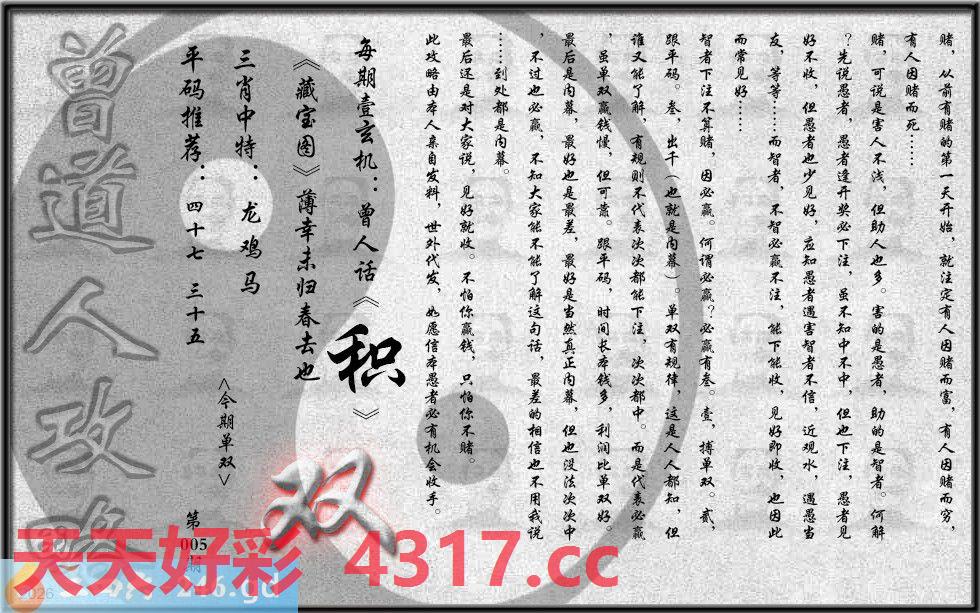 赌，从前有赌的第一天开始，就注定有人因赌而富，有人因赌而穷，
有人因赌而死……
赌，可说是害人不浅，但助人也多。害的是愚者，助的是智者。何解
？先说愚者，愚者逢开奖必下注，虽不知中不中，但也下注，愚者见
好不收，但愚者也少见好，应知愚者遇害智者不信，近观水，遇愚当
友，等等……而智者，不智必赢不注，能下能收，见好即收，也因此
而常见好……
智者下注不算赌，因必赢。何谓必赢？必赢有叁。壹，搏单双。贰，
跟平码。叁，出千（也就是内幕）。单双有规律，这是人人都知，但
谁又能了解，有规则不代表次次都能下注，次次都中。而是代表必赢
，虽单双赢钱慢，但可靠。跟平码，时间长本钱多，利润比单双好。
最后是内幕，最好也是最差，最好是当然真正内幕，但也没法次次中
，不过也必赢，不知大家能不能了解这句话，最差的相信也不用我说
……到处都是内幕。
最后还是对大家说，见好就收。不怕你赢钱，只怕你不赌。
此攻略由本人亲自发料，世外代发，如愿信本愚者必有机会收手。
每期壹玄机：曾人话《积》
《藏宝图》薄幸未归春去也
三肖中特：龙鸡马
平码推荐：四十七 三十五
<今期单双>
双
第
005
期
曾道人攻略
天天好彩 4317.cc
2026